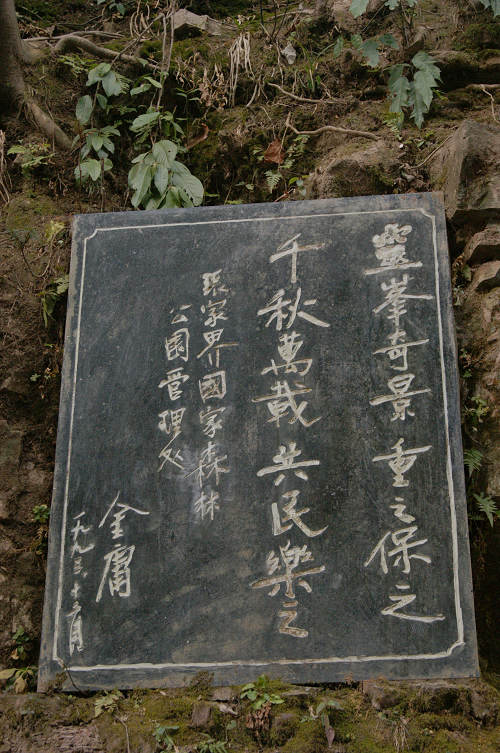 靈峯奇景 重之保之
千秋萬載 共民樂之
張家界國家森林
公園管理处
金庸
一九九三・十一月